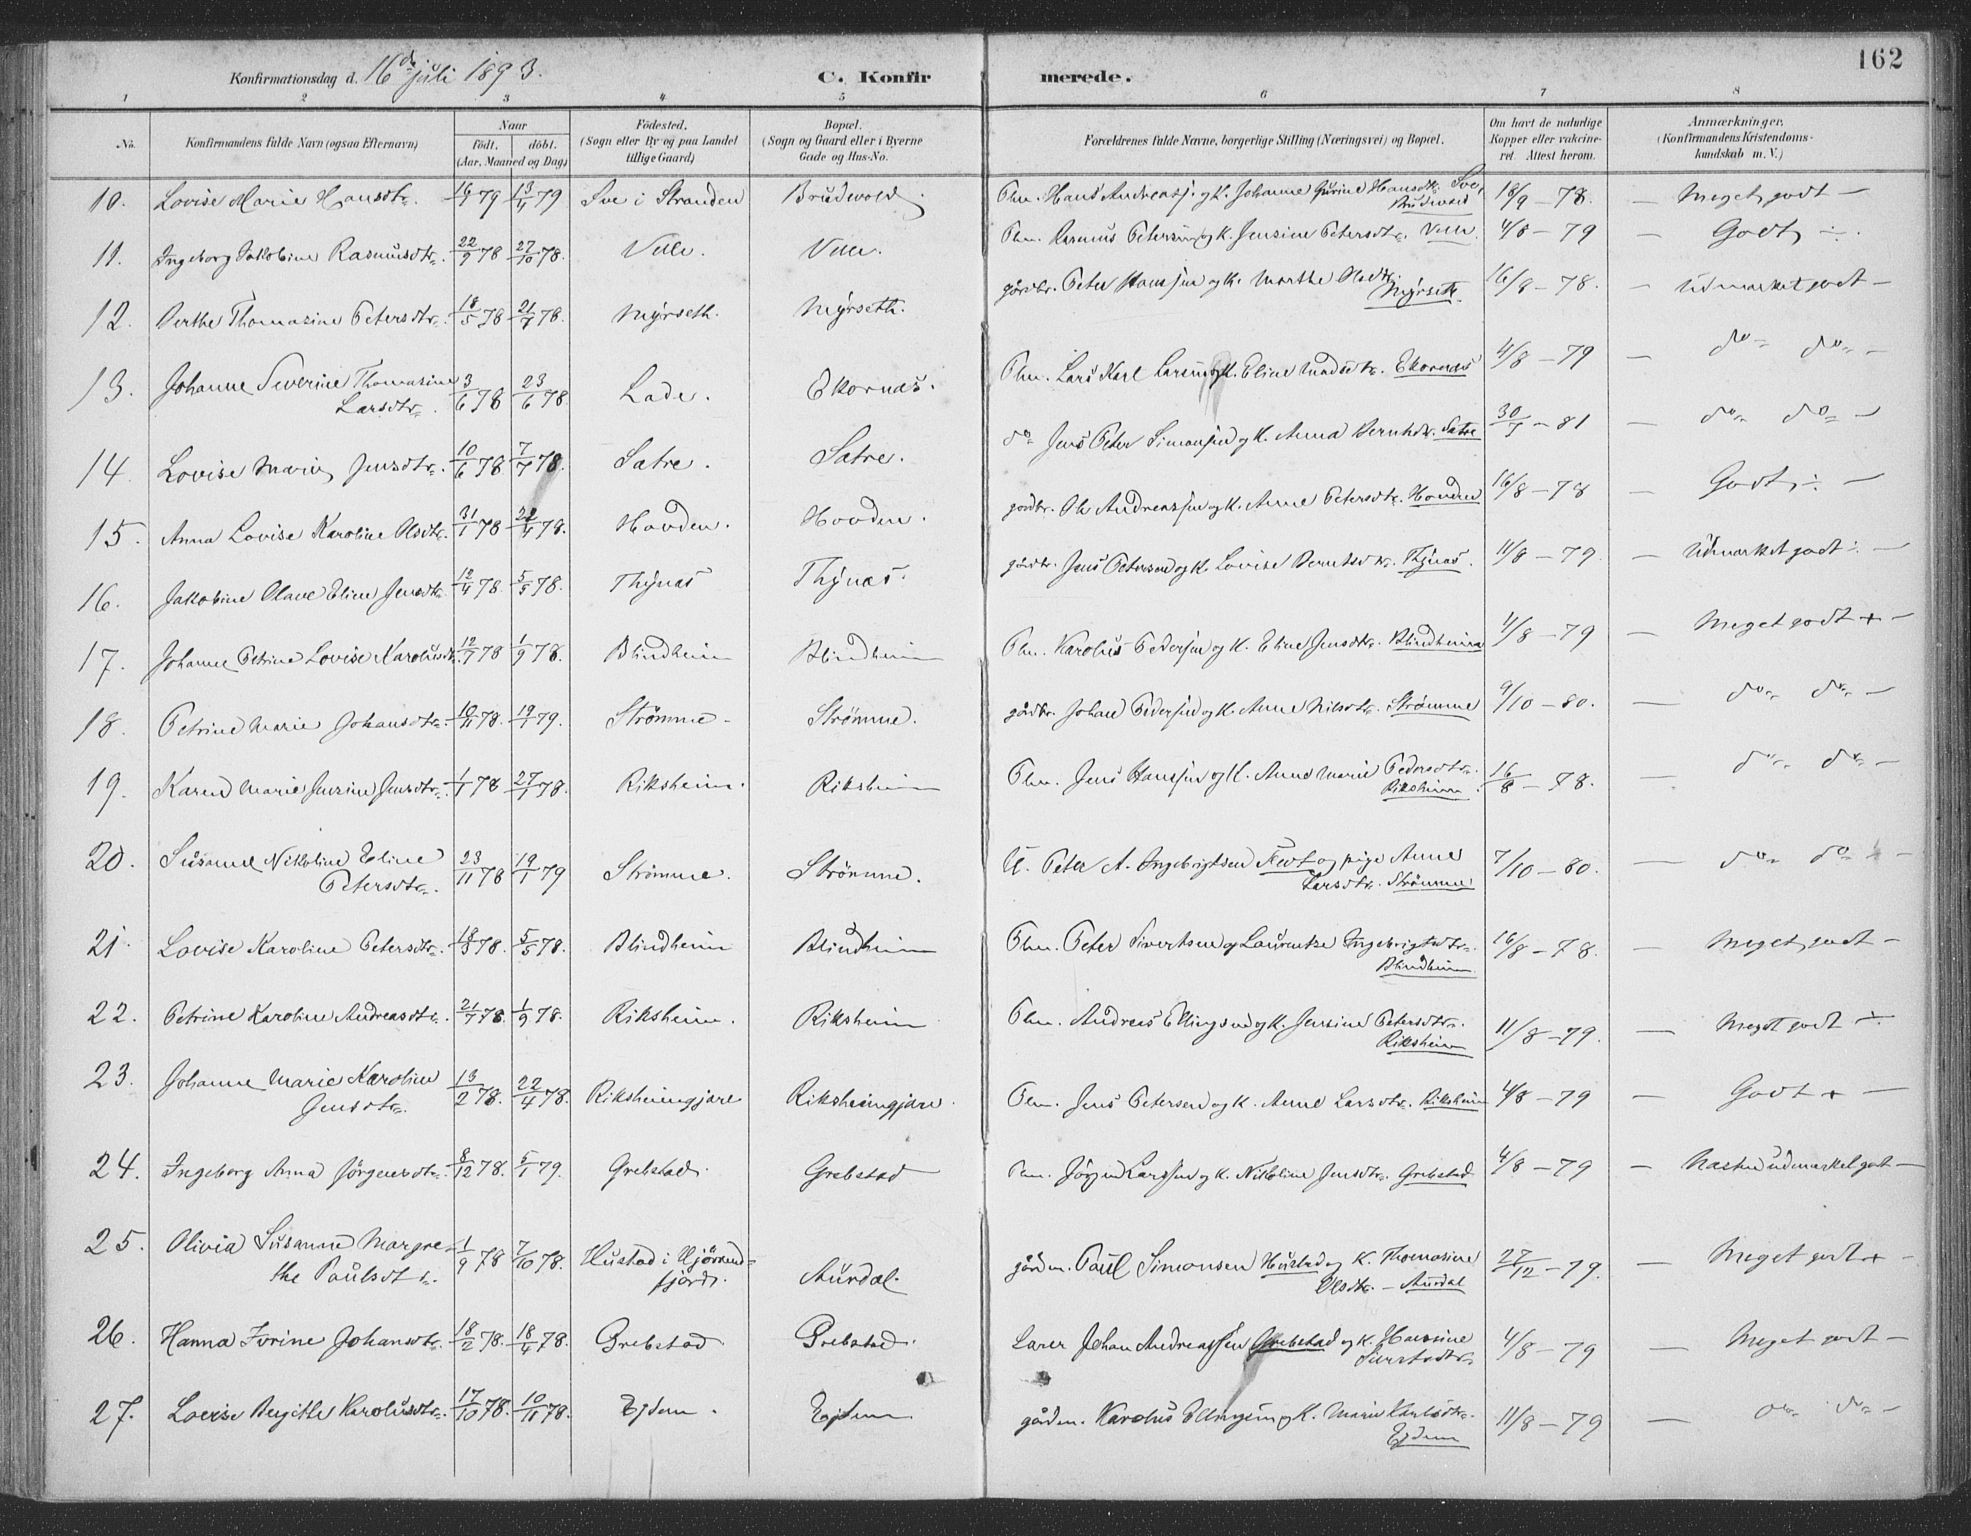 162
Konfirmationsdag d. 16de juli 1893. C. Konfirmerede.
1 2 3 4 5 6 7 8
No. Konfirmandens fulde Navn (ogsaa Efternavn) Naar født. døbt. (Aar, Maaned og Dag) Fødested. (Sogn eller By og paa Landet tillige Gaard) Bopæl. (Sogn og Gaard eller i Byerne Gade og Hus-No. Forældrenes fulde Navne, borgerlige Stilling (Næringsvei) og Bopæl. Om havt de naturlige Kopper eller vakcineret Attest herom. Anmærkninger. (Konfirmandens Kristendomskundskab m. V.)
10. Lovise Marie Hansdtr. 79 13/4 79 Sve i Stranden Brudevold Plm. Hans Andreass. og K. Johanne Gurine Hansdtr. Sve, Brudevold 18/9 – 78. – Meget godt –
11. Ingeborg Jakobine Rasmusdtr. 22/9 78 27/10 78. Velle. Velle. Plm. Rasmus Petersen og K. Jensine Petersdtr. Velle. 4/8 – 79 – Godt ÷.
12. Berthe Thomasine Petersdtr. 18/5 78 21/7 78. Myrseth. Myrseth. gårdbr. Peter Hansen og K. Marthe Olsdtr. Myrseth. 16/8 – 78. – Udmærket godt –
13. Johanne Severine Thomasine Larsdtr. 3/6 78 23/6 78. Lade. Ekornæs. Plm. Lars Karl Larsen og K. Eline Madsdtr. Ekornæs 4/8 – 79 – do do –
14. Lovise Marie Jensdtr. 10/6 78 7/7 78. Satre. Satre. do Jens Peter Simonsen og K. Anna Berntsdtr. Satre 81 – do do –
15. Anna Lovise Karoline Olsdtr. 31/1 78 22/4 78. Hovden. Hovden. gårdbr. Ole Andreassen og K. Anne Petersdtr. Hovden 16/8 – 78 – Godt ÷ –
16. Jakobine Olave Eline Jensdtr. 12/4 78. 5/5 78. Thynæs Thynæs. gårdbr. Jens Petersen og K. Lovise Berntsdtr. Thynæs. 11/8 – 79. – Udmærket godt ÷ –
17. Johanne Petrine Lovise Karolusdtr. 12/7 78 1/9 78. Blindheim Blindheim Plm. Karolus Pedersen og K. Eline Jensdtr. Blindheim 4/8 – 79 – Meget godt + –
18. Petrine Marie Johansdtr. 10/11 78. 19/1 79. Strømme – Strømme. gårdbr. Johan Pedersen og K. Anne Nilsdtr. Strømme 9/10 – 80. – do do –
19. Karen Marie Jensine Jensdtr. 1/1 78 27/1 78. Riksheim. Riksheim Plm. Jens Hansen og K. Anne Marie Pedersdtr. Riksheim. 16/8 – 78. – do do –
20. Susanne Nikoline Eline Petersdtr. 23/11 78 19/1 79 Strømme. Strømme. U. Peter A. Ingebrigtsen og pige Anne Larsdtr. Strømme 7/10 – 80. – do do –
21. Lovise Karoline Petersdtr. 18/3 78. 5/5 78. Blindheim Blindheim Plm. Peter Sivertsen og Laurentze Ingebrigtsdtr. Blindheim 16/8 – 78. – Meget godt –
22. Petrine Karoline Andreasdtr. 21/7 78. 1/9 78. Riksheim. Riksheim Plm. Andreas Ellingsen og K. Jensine Petersdtr. Riksheim 11/8 – 79. – Meget godt ÷
23. Johanne Marie Karoline Jensdtr. 13/2 78. 22/4 78. Riksheimgjære Riksheimgjære. Plm. Jens Petersen og K. Anne Larsdtr. Riksheim 4/8 – 79 – Godt + –
24. Ingeborg Anna Jørgensdtr. 8/12 78. 5/1 79. Grebstad. Grebstad Plm. Jørgen Larssen og K. Nikoline Jensdtr. Grebstad 4/8 – 79 – Næsten udmærket godt –
25. Olivia Susanne Margrethe Paulsdtr. 1/9 78 7/10 78. Hustad i Hjørendfjord. Aurdal. gårdm. Paul Simonsen Hustad og K. Thomasine Olsdtr. – Aurdal 27/12 – 79. – Meget godt + –
26. Hanna Jorine Johansdtr. 18/2 78. 18/4 78. Grebstad Grebstad. Lærer Johan Andreassen Grebstad og K. Hansine Sivertsdtr. 4/8 – 79 – Meget godt –
27. Lovise Bergitte Karolusdtr. 17/10 78. 10/11 78. Ejdem. Ejdem gårdm. Karolus Ellingsen og K. Marie Karlsdtr. Ejdem 11/8 – 79 – do do –